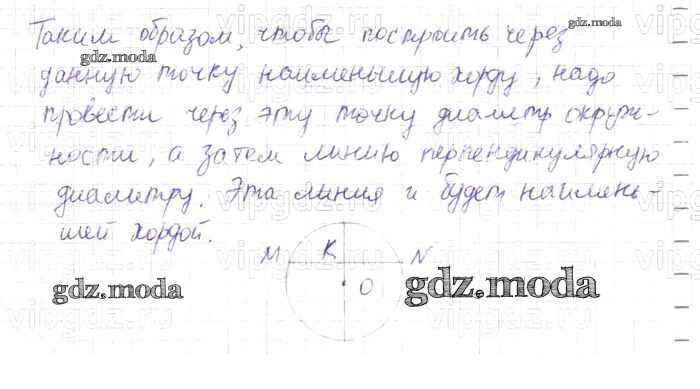 Таким образом, чтобы построить через
данную точку наименьшую хорду, надо
провести через эту точку диаметр окруж-
ности, а затем линию перпендикулярную
диаметру. Эта линия и будет наимень-
шей хордой.
M K N
O
gdz.moda
gdz.moda
gdz.moda
gdz.moda
vipgdz.ru